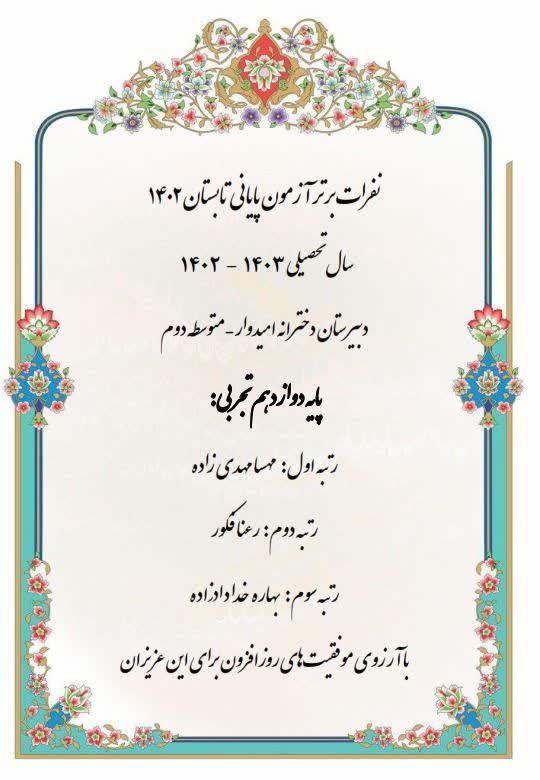 نفرات برتر آزمون پایانی تابستان ۱۴۰۲
سال تحصیلی ۱۴۰۳ - ۱۴۰۲
دبیرستان دخترانه امیدوار - متوسطه دوم
پایه دوازدهم تجربی:
رتبه اول: مهسا مهدی زاده
رتبه دوم: رعنا فکور
رتبه سوم: بهاره خدادادزاده
با آرزوی موفقیت های روز افزون برای این عزیزان